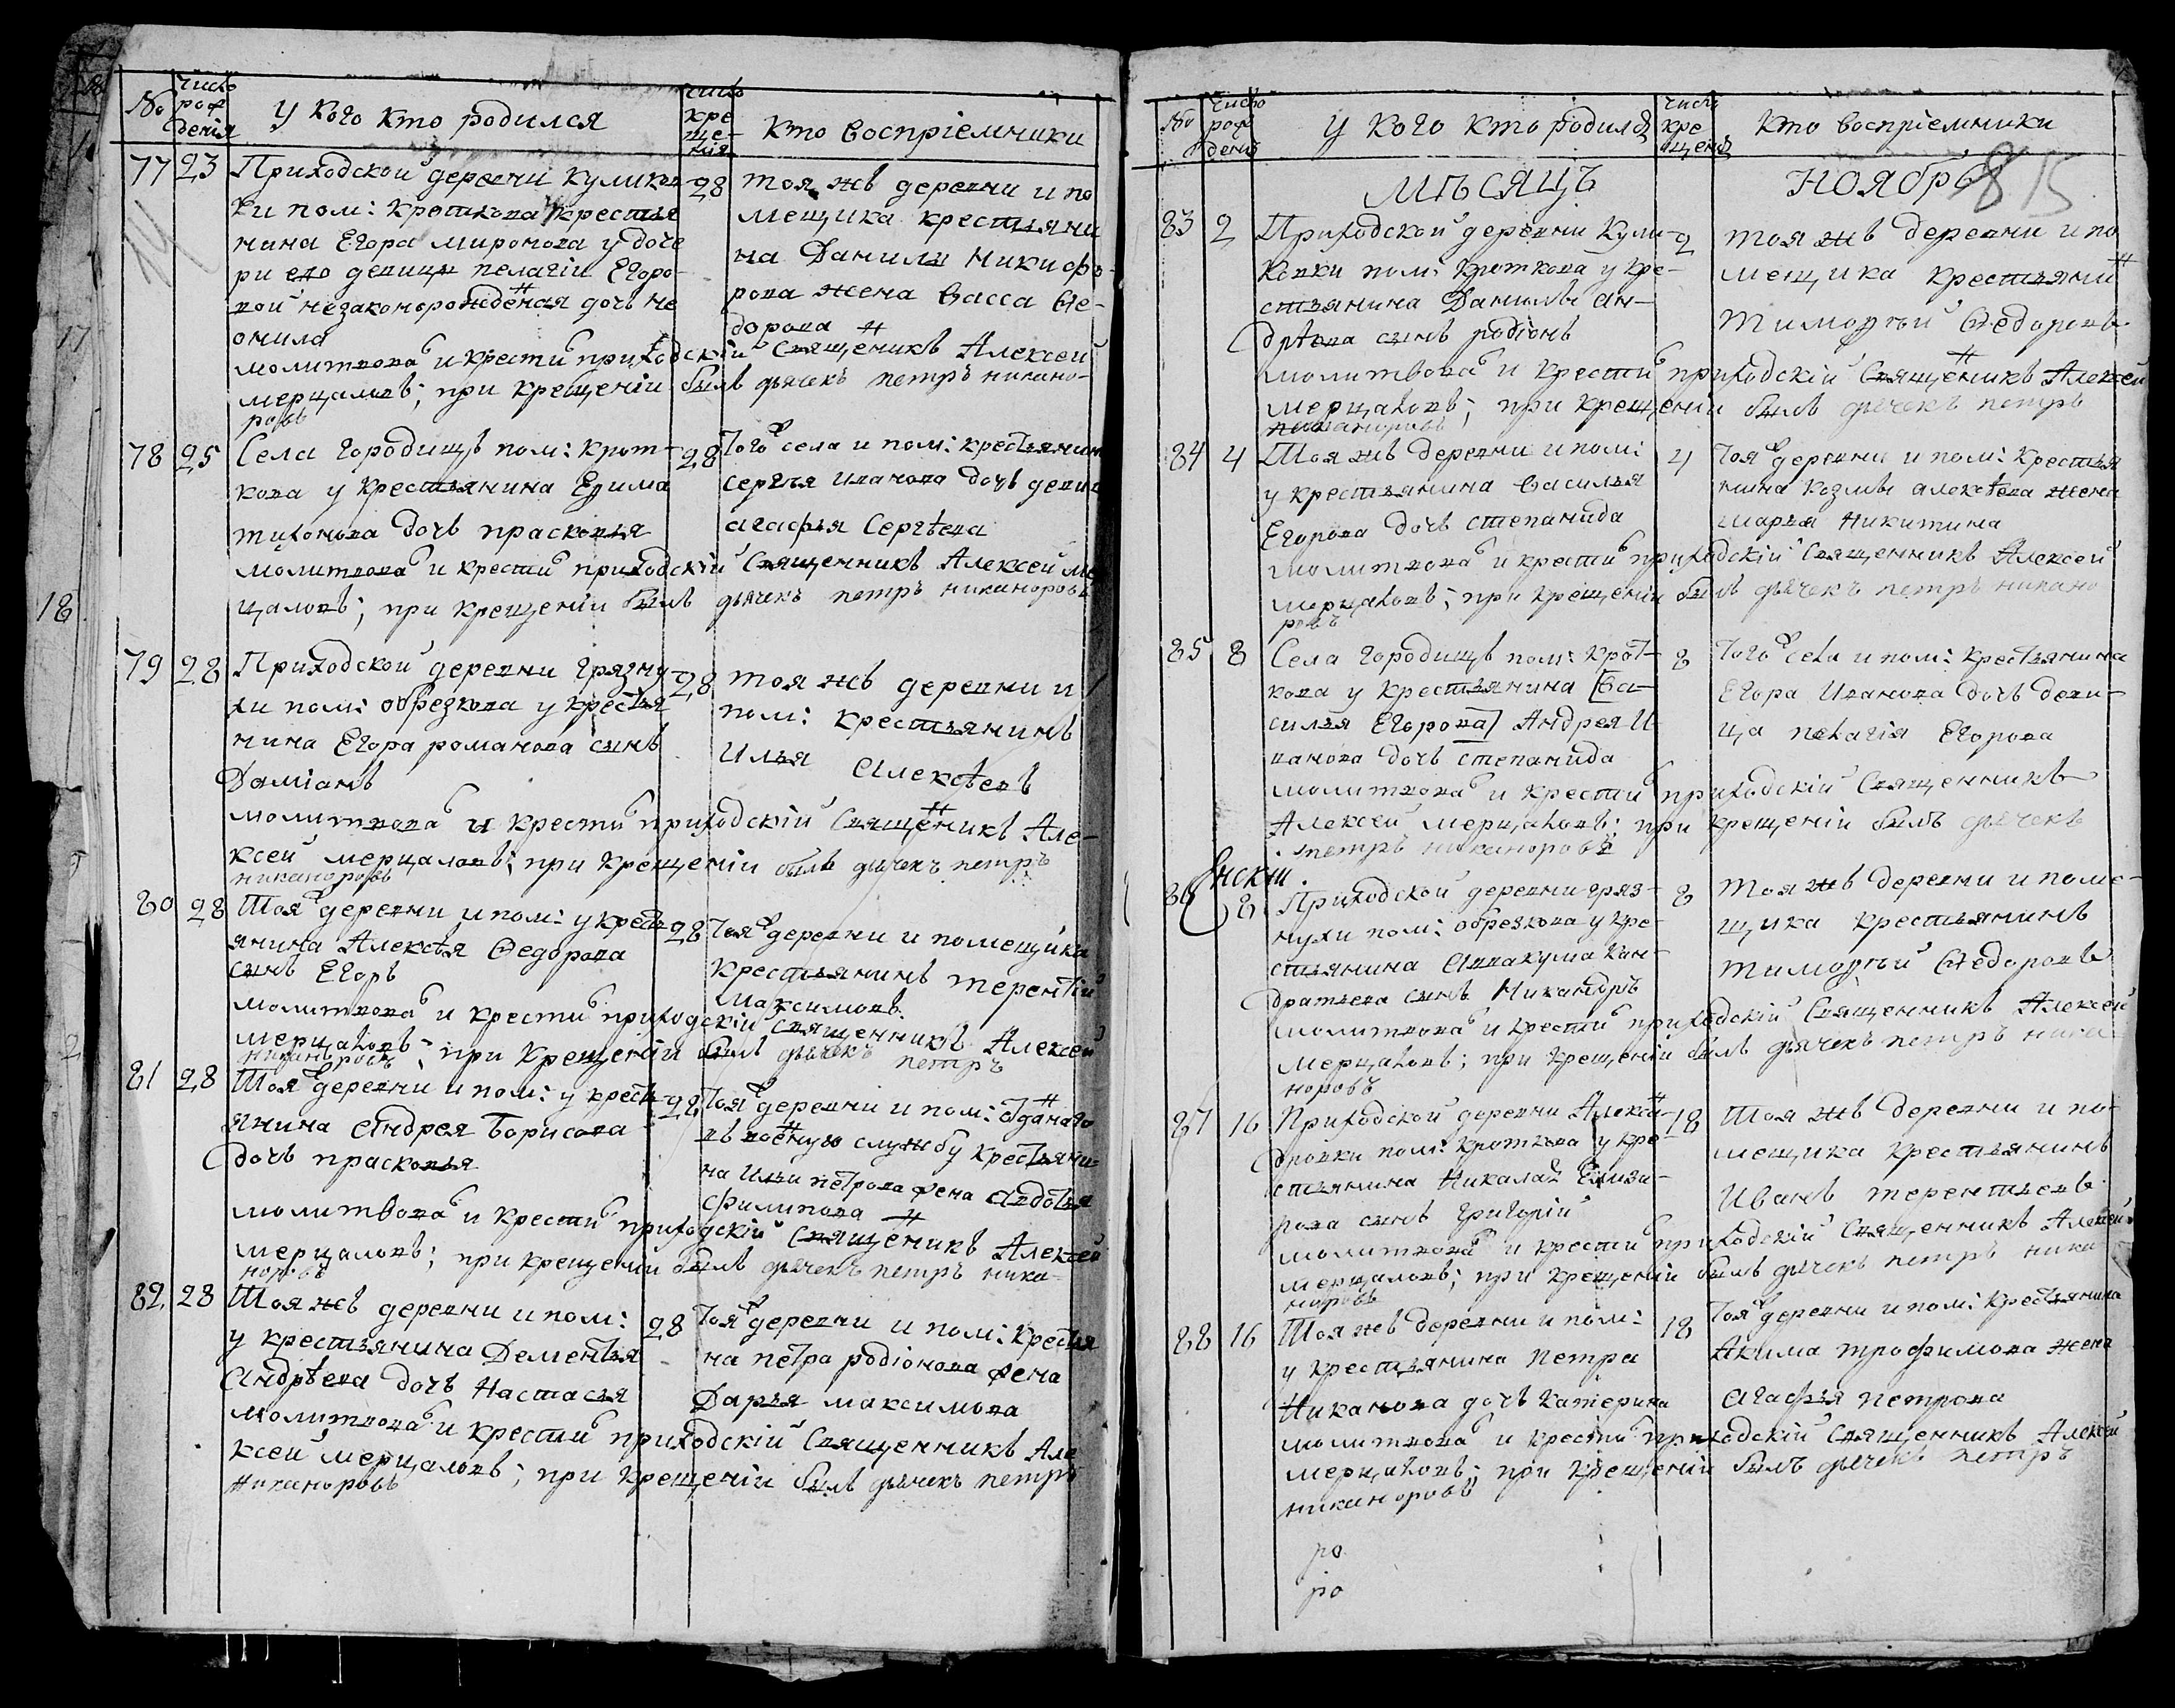 №
число рождения
у кого кто родился
число крещения
кто воспріемники
77
23
Приходской деревни куликов
ки пом: кроткова крестья
нина Егора миронова у доче
ри ево девицы пелагіи Егоро
вой незаконорожденая дочь не
онила
28
тоя жъ деревни и по
мещика крестьяни
на Данилы Никифо-
рова жена Васса Ѳе-
дорова
молитвовалъ и крестилъ приходскій Священикъ Алексей
мерцаловъ; при крещеніи былъ дьячекъ петръ никано-
ровъ
78
25
Села городищъ пом: крот-
кова у крестьянина Ефима
тихонова дочь прасковья
28
Тогоже села и пом: крестьянина
сергѣя иванова дочь девица
агафья Сергѣева
молитвовалъ и крестилъ приходскій Священникъ Алексей мер
цаловъ; при крещеніи былъ дьячекъ петръ никаноровъ
79
28
Приходской деревни грязну-
хи пом: обрезкова у крестья
нина Егора романова сынъ
Даміанъ
28
тоя жъ деревни и
пом: крестьянинъ
илья Алексѣевъ
молитвовалъ и крестилъ приходскій Священикъ Але-
ксей мерцаловъ; при крещеніи былъ дьячекъ петръ
никаноровъ
80
28
Тояже деревни и пом: у кресть
янина Алексѣя Ѳедорова
сынъ Егоръ
28
Тояже деревни и помещика
крестьянинъ терентій
максимовъ
молитвовалъ и крестилъ приходскій Священникъ Алексей
мерцаловъ; при крещеніи былъ дьячекъ петръ
никаноровъ
81
28
Тояже деревни и пом: у кресть
янина Андрея Борисова
дочь прасковья
28
Тояже деревни и пом: отданаго
въ военую службу крестьяни-
на ильи петрова жена Авдотья
филипова
молитвовалъ и крестилъ приходскій Священикъ Алексей
мерцаловъ; при крещеніи былъ дьячекъ петръ ника-
норовъ
82
28
Тоя жъ деревни и пом:
у крестьянина Дементья
Андрѣева дочь Настасья
28
Тояже деревни и пом: крестья
на петра родіонова жена
Дарья максимова
молитвовалъ и крестилъ приходскій Священникъ Але
ксей мерцаловъ; при крещеніи былъ дьячекъ петръ
Никаноровъ
№
число рождения
у кого кто родился
число крещения
кто воспріемники
815
мѣсяцъ
ноябрь
83
2
Приходской деревни Кули-
ковки пом: кроткова у кре-
стьянина Данилы Ан-
дрѣева сынъ родіонъ
2
тоя жъ деревни и по
мещика крестьянинъ
Тимофѣй Ѳедоровъ
молитвовалъ и крестилъ приходскій Священикъ Алексей
мерцаловъ; при крещеніи былъ дьячекъ петръ
никаноровъ
84
4
Тоя жъ деревни и пом:
у крестьянина Василья
Егорова дочь степанида
4
Тояже деревни и пом: крестья
нина козмы алексѣева жена
марья Никитина
молитвовалъ и крестилъ приходскій Священникъ Алексей
мерцаловъ; при крещеніи былъ дьячекъ петръ никано
ровъ
85
8
Села городищъ пом: крот-
кова у крестьянина [Ва-
силья Егорова] Андрея И
ванова дочь степанида
8
Тогоже села и пом: крестьянина
Егора Иванова дочь деви-
ца пелагія Егорова
молитвовалъ и крестилъ приходскій Священникъ
Алексей мерцаловъ: при крещеніи былъ дьячекъ
петръ никаноровъ
86
8
Приходской деревни гряз-
нухи пом: обрезкова у кре-
стьянина Аввакума Кон-
дратьева сынъ Никандръ
8
тоя жъ деревни и поме-
щика крестьянинъ
тимофѣй Ѳедоровъ
молитвовалъ и крестилъ приходскій Священникъ Алексей
мерцаловъ; при крещеніи былъ дьячекъ петръ ника
норовъ
87
16
Приходской деревни Алексан-
дровки пом: кроткова у кре-
стьянина Николая Елиза-
рова сынъ григорій
18
Тоя жъ деревни и по-
мещика крестьянинъ
Иванъ терентьевъ
молитвовалъ и крестилъ приходскій Священникъ Алексей
мерцаловъ; при крещеніи былъ дьячекъ петръ ника
норовъ
88
16
Тоя жъ деревни и пом:
у крестьянина Петра
Никонова дочь катерина
18
Тояже деревни и пом: крестьянина
Акима трофимова жена
агафья петрова
молитвовалъ и крестилъ приходскій Священникъ Алексей
мерцаловъ; при крещеніи былъ дьячекъ петръ
никаноровъ
ро
ро